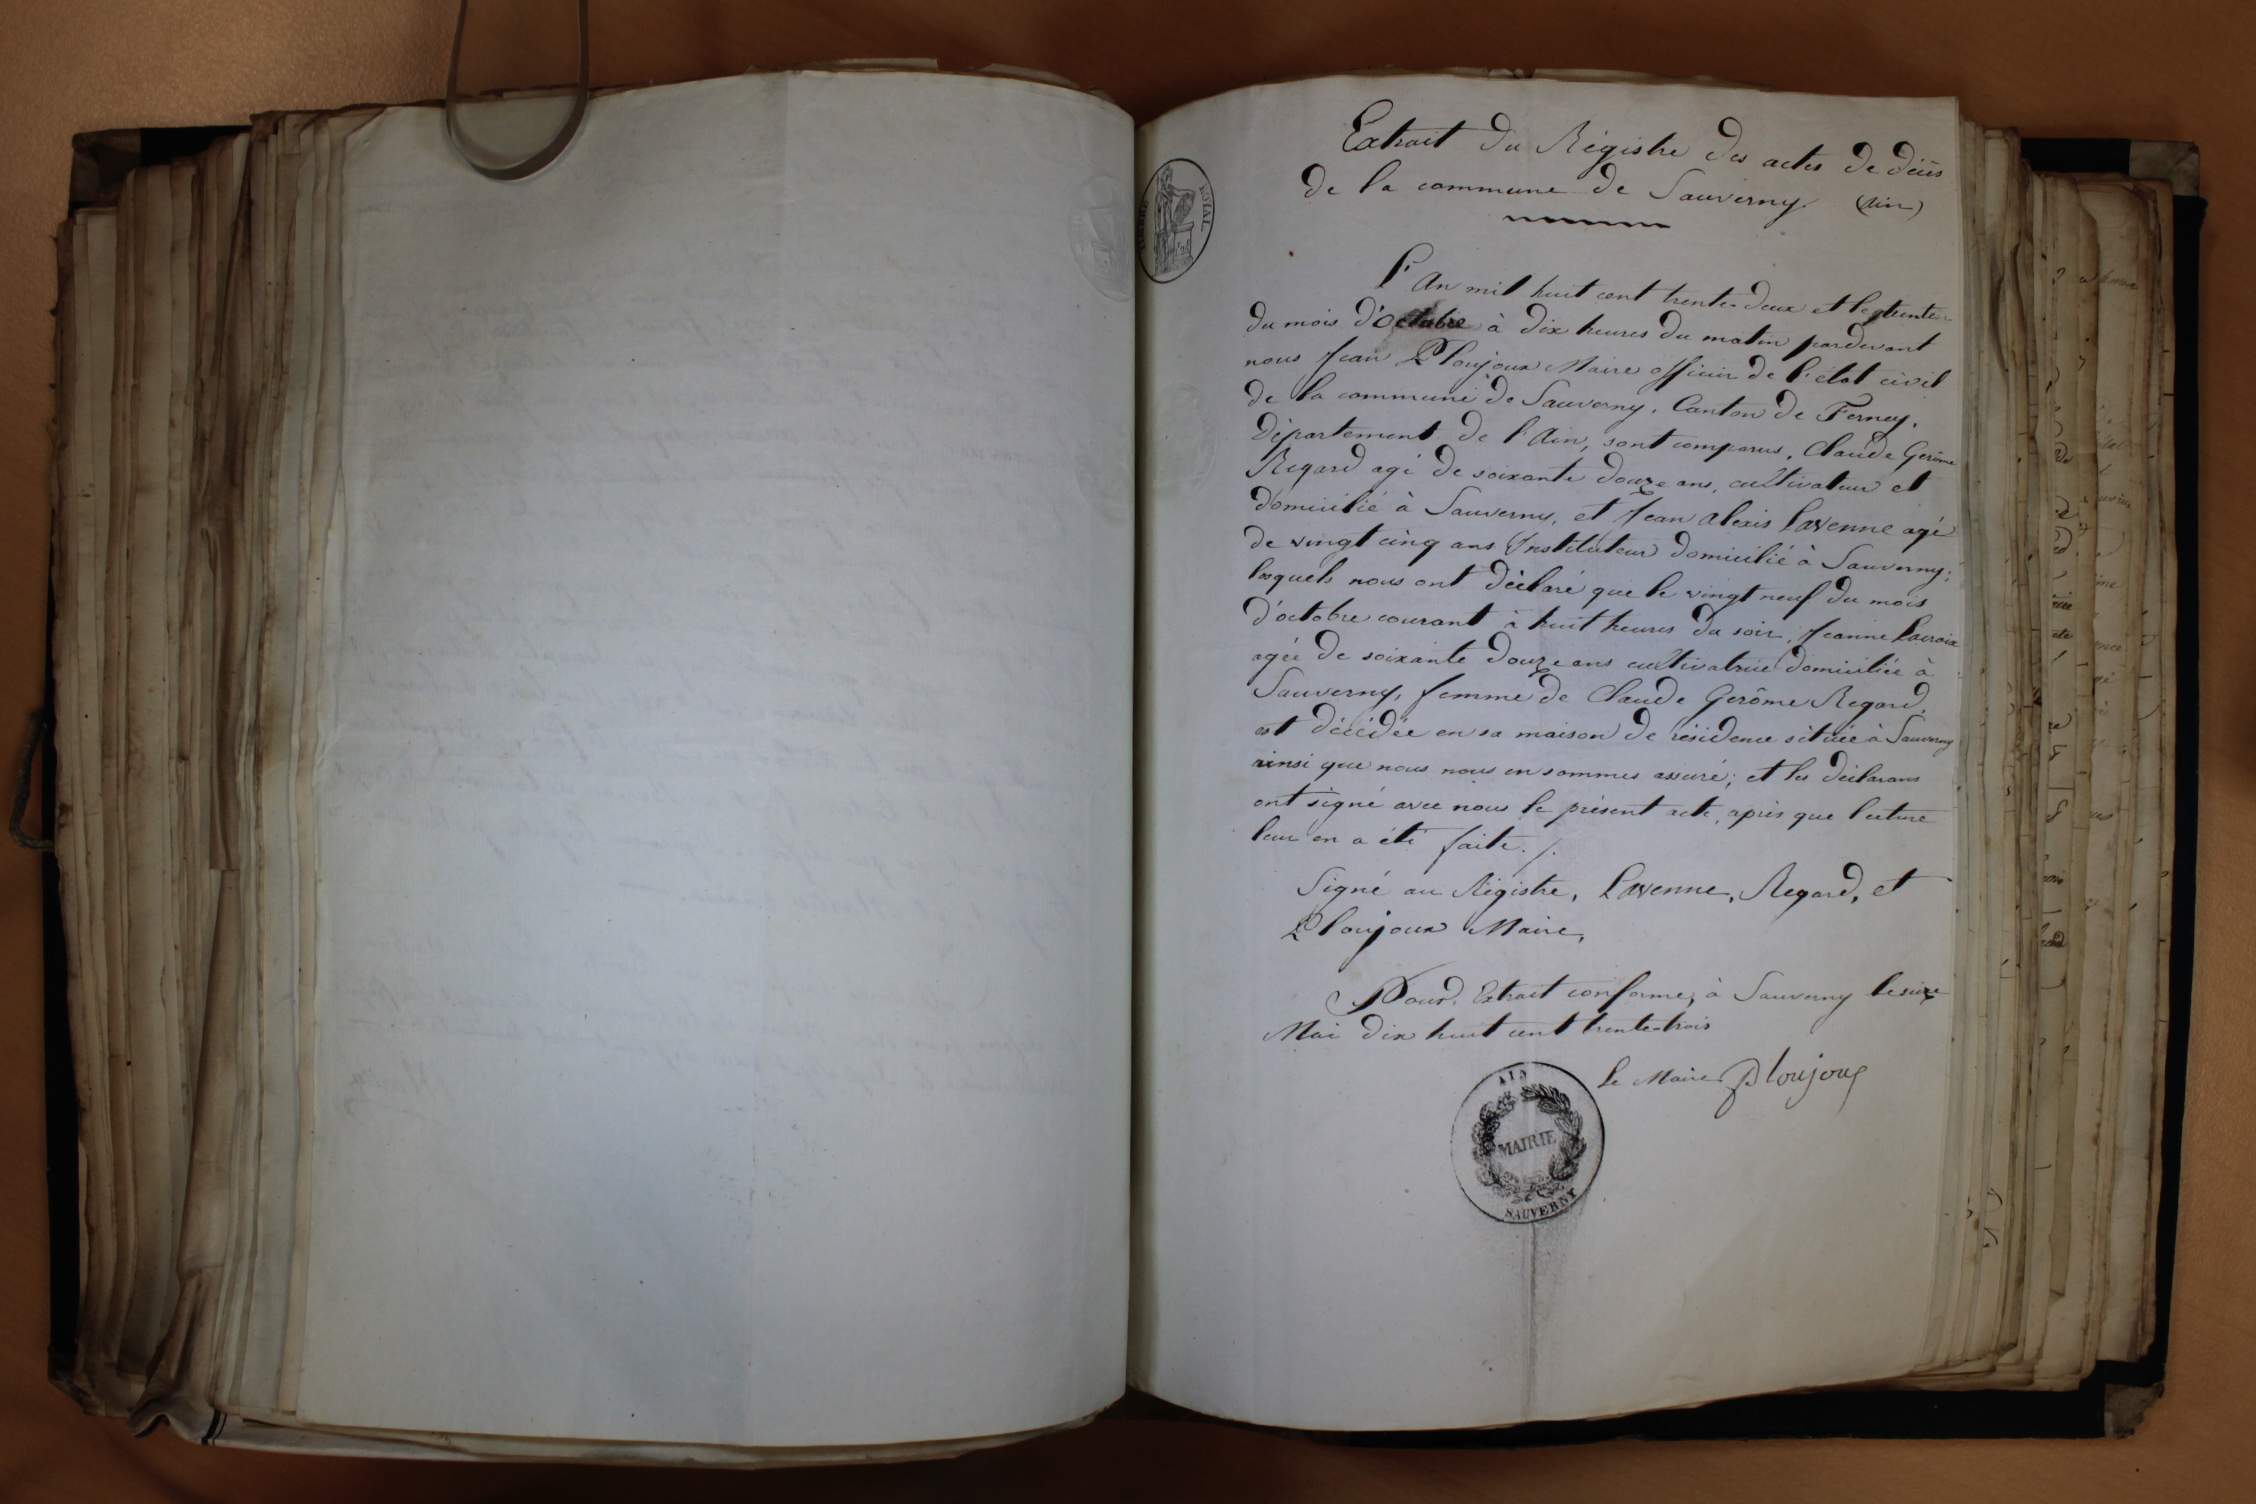 Extrait du Régistre des actes de décès
de la commune de Sauverny (Ain)
TIMBRE ROYAL
L'An mil huit cent trente-deux et le trente
du mois d'Octobre à dix heures du matin pardevant
nous Jean Ploujoux Maire officier de l'état civil
de la commune de Sauverny, Canton de Ferney,
Département de l'Ain, sont comparus, Claude Gerôme
Regard agé de soixante douze ans, cultivateur et
domicilié à Sauverny, et Jean Alexis Lavenne agé
de vingt cinq ans Instituteur domicilié à Sauverny;
lesquels nous ont déclaré que le vingt neuf du mois
d'octobre courant à huit heures du soir, Jeanne Lacroix
agée de soixante douze ans cultivatrice domiciliée à
Sauverny, femme de Claude Gerôme Regard,
est décédée en sa maison de résidence située à Sauverny
ainsi que nous nous en sommes assuré; et les déclarans
ont signé avec nous le présent acte, après que lecture
leur en a été faite./.
Signé au Régistre, Lavenne, Regard, et
Ploujoux Maire,
Pour Extrait conforme, à Sauverny le seize
Mai dix huit cent trente-trois
Le Maire Ploujoux
AIN
MAIRIE
SAUVERNY